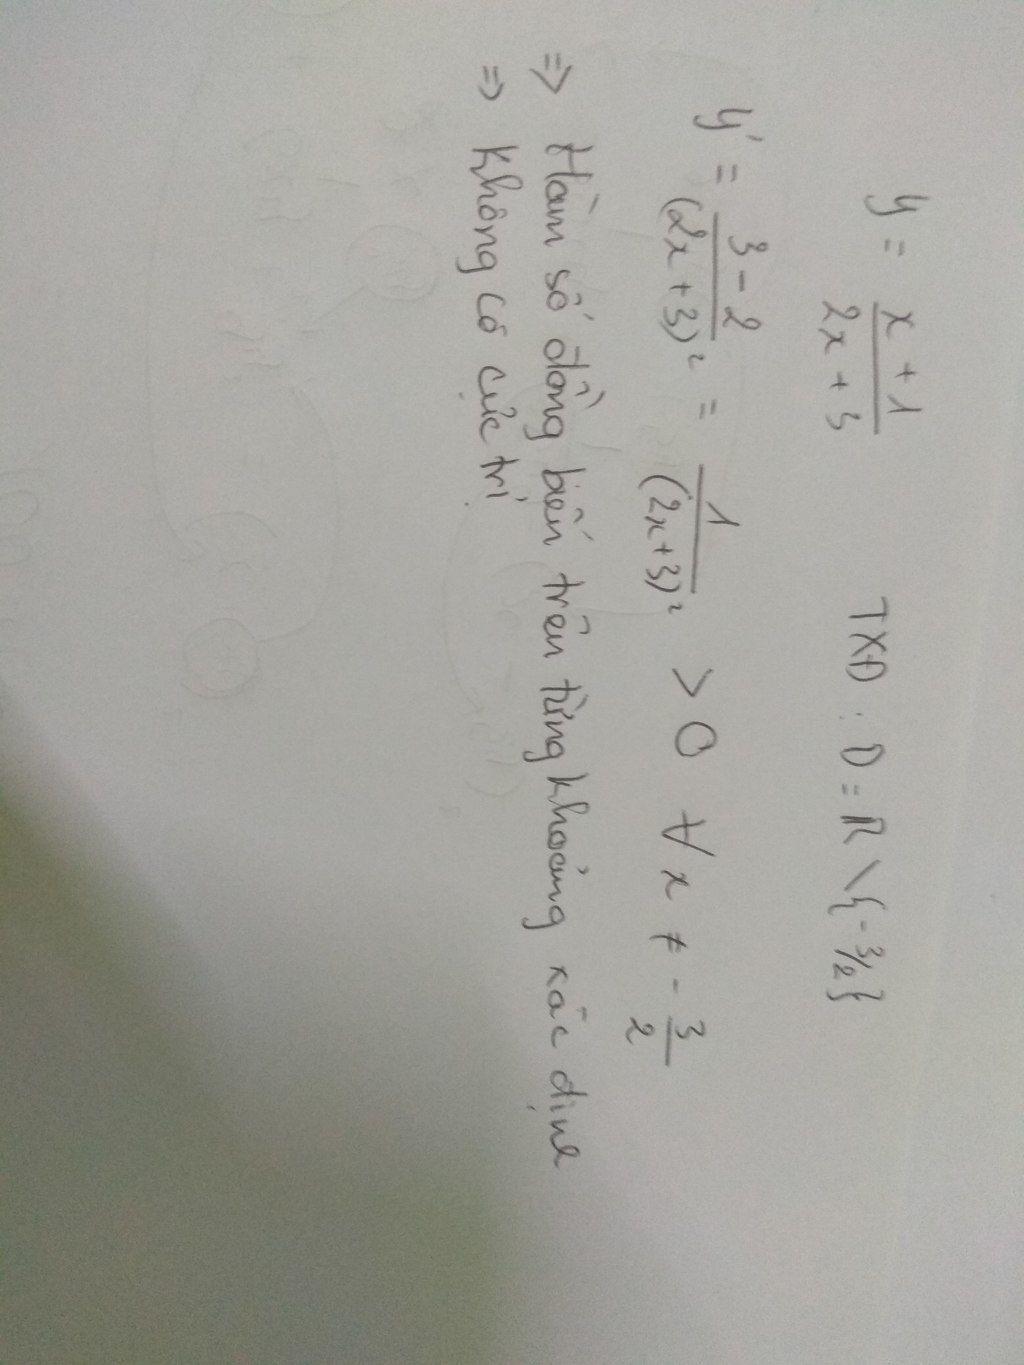 y = (x + 1)/(2x + 3) TXĐ : D = R \ {-3/2}
y' = (3 - 2)/(2x + 3)² = 1/(2x+3)² > 0 ∀ x ≠ - 3/2
=> Hàm số đồng biến trên từng khoảng xác định
=> Không có cực trị